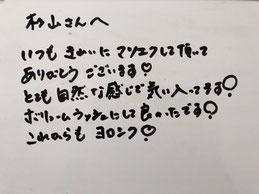 杉山さんへ
いつも きれいに マツエクして頂いて
ありがとう ございます♡
とても 自然な感じで気に入ってます♡
ボリュームラッシュにして良かったです♡
これからも ヨロシク♡